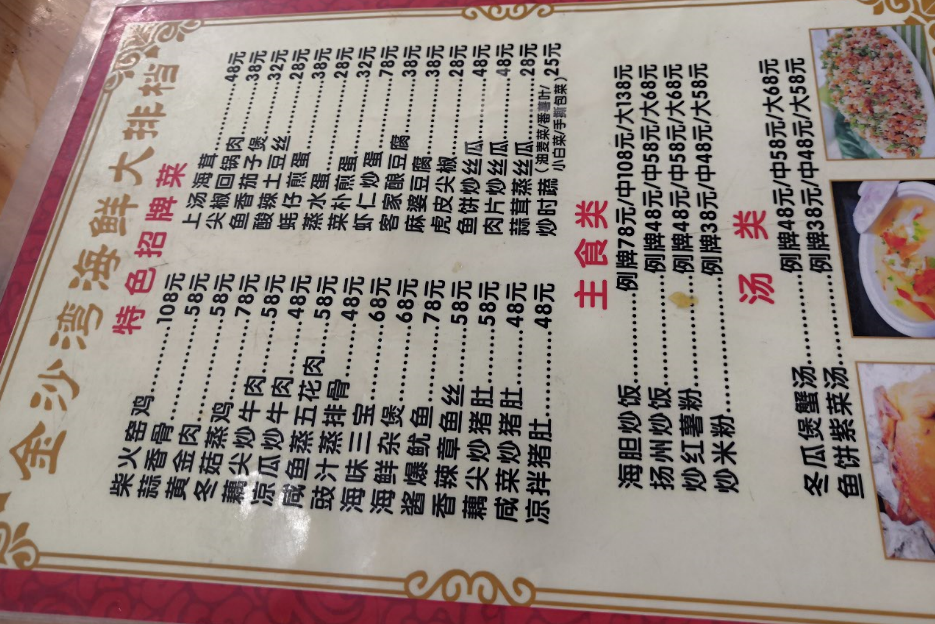 金沙湾海鲜大排档
特色招牌菜
柴火窑鸡………108元
蒜香骨………58元
黄金肉………58元
冬菇蒸鸡………78元
藕尖炒牛肉………58元
凉瓜炒牛肉………48元
咸鱼蒸五花肉………58元
豉汁蒸排骨………48元
海味三宝………68元
海鲜杂煲………68元
酱爆鱿鱼………78元
香辣章鱼丝………58元
藕尖炒猪肚………58元
咸菜炒猪肚………48元
凉拌猪肚………48元
上汤海茸………48元
尖椒回锅肉………38元
鱼香茄子煲………32元
酸辣土豆丝………28元
蚝仔煎蛋………38元
蒸水蛋………28元
菜朴煎蛋………32元
虾仁炒蛋………78元
客家酿豆腐………38元
麻婆豆腐………38元
虎皮尖椒………28元
鱼饼炒丝瓜………48元
肉片炒丝瓜………48元
蒜茸蒸丝瓜………28元
炒时蔬（油麦菜/番薯叶/小白菜/手撕包菜）25元
主食类
海胆炒饭………例牌78元/中108元/大138元
扬州炒饭………例牌48元/中58元/大68元
炒红薯粉………例牌48元/中58元/大68元
炒米粉………例牌38元/中48元/大58元
汤类
冬瓜煲蟹汤………例牌48元/中58元/大68元
鱼饼紫菜汤………例牌38元/中48元/大58元